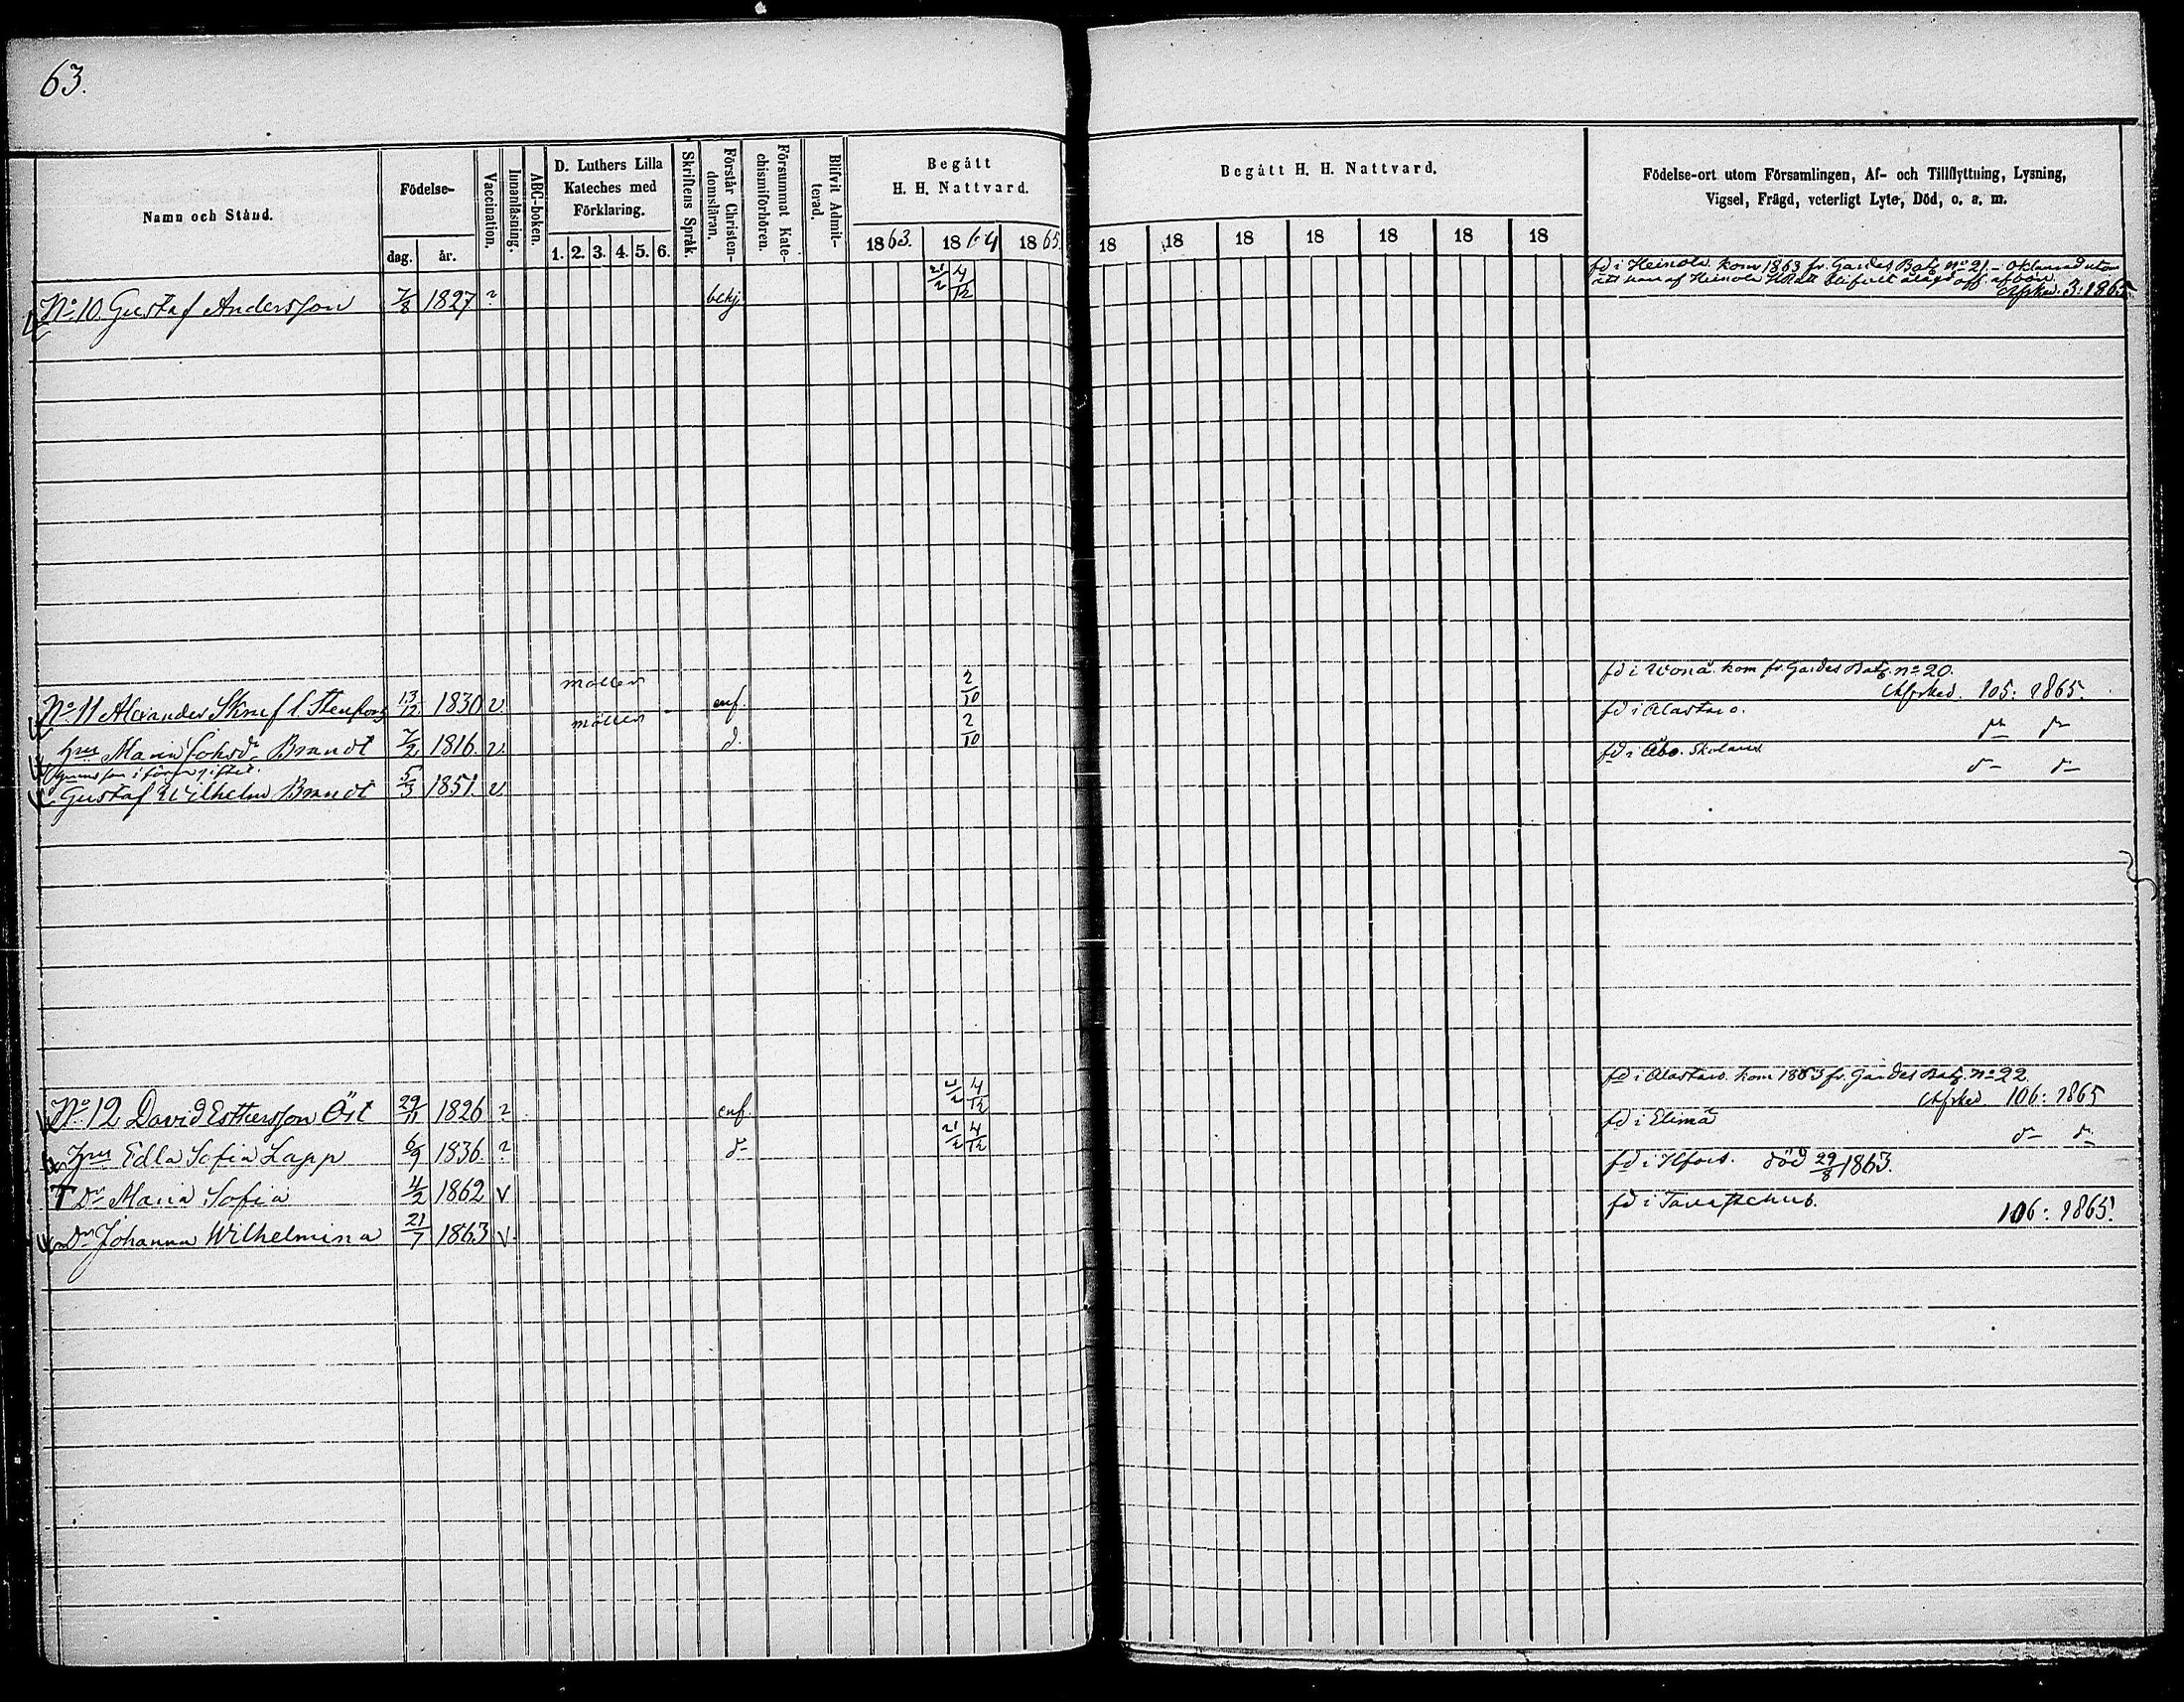 63.
Namn och Stånd.
Födelse-
dag. år.
Vaccination.
Innanläsning.
ABC-boken.
D. Luthers Lilla
Kateches med
Förklaring.
1. 2. 3. 4. 5. 6.
Skriftens Språk.
Förstår Christen-
domsläran.
Försummat Kate-
chismiförhören.
Blifvit Admit-
terad.
Begått
H. H. Nattvard.
1863. 1864 1865.
Begått H. H. Nattvard.
18 18 18 18 18 18 18
Födelse-ort utom Församlingen, Af- och Tillflyttning, Lysning,
Vigsel, Frägd, veterligt Lyte, Död, o. s. m.
No 10. Gustaf Andersson 7/8 1827 ? bekj 21/2 4/12
fd i Heinola. kom 1863 fr. Gardes Bat. no 21.
Afsked. 3: 1865.
No 11 Alexander 13/12 1830 v. möllen enf. 2/10
fd i kom fr. Gardes Bat. no 20.
Afsked. 105: 1865.
Hus Maria Brandt 7/2 1816. v. möllen d. 2/10
fd i Alastaro. d- d-
Gustaf Wilhelm Brandt 5/3 1851. v.
fd i Åbo. d- d-
No 12 David Esthersson Öst 29/11 1826 ? enf. 21/2 4/12
fd i Alastaro. kom 1863 fr. Gardes Bat. no 22.
Afsked. 106: 1865
Hus Edla Sofia Lapp 6/9 1836. ? d- 21/2 4/12
fd i Elimä d- d-
Dr Maria Sofia 4/2 1862 v
fd i Hfors. död 29/8 1863.
Dr Johanna Wilhelmina 21/7 1863 v.
fd i Tavastehus. 106: 1865.